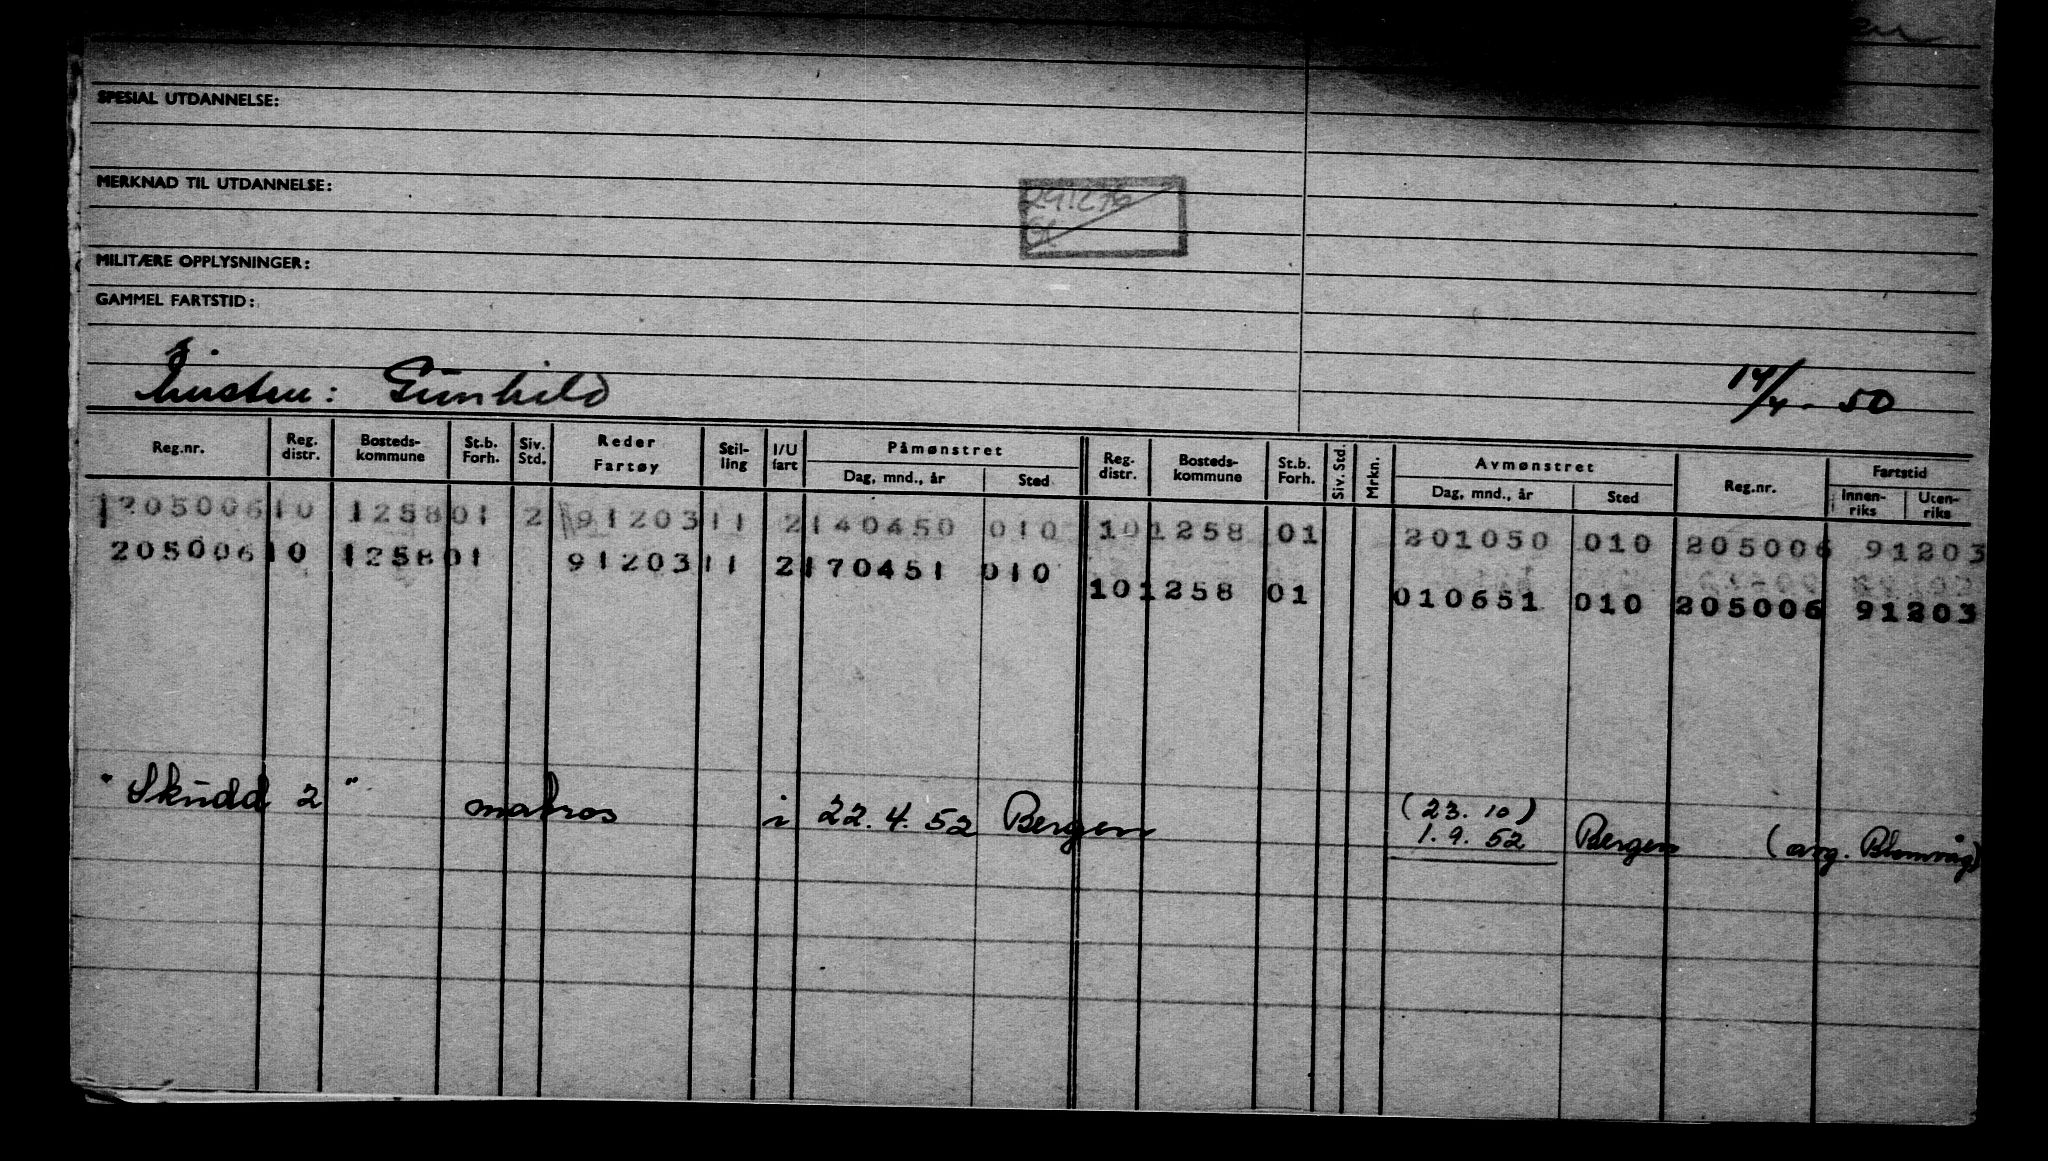 SPESIAL UTDANNELSE:
MERKNAD TIL UTDANNELSE:
291276
MILITÆRE OPPLYSNINGER:
GAMMEL FARTSTID:
hustru: Gunhild 14/4-50
Reg.nr. Reg. distr. Bosteds-kommune St.b. Forh. Siv. Std. Reder Fartøy Stil-ling I/U fart Påmønstret Dag, mnd., år Sted Reg. distr. Bosteds-kommune St.b. Forh. Siv. Std. Mrkn. Avmønstret Dag, mnd., år Sted Reg.nr. Fartstid Innen-riks Uten-riks
1205006 10 1258 01 2 91203 11 2 140450 010 10 1258 01 201050 010 205006 91203
205006 10 1258 01 91203 11 2 170451 010 10 1258 01 010651 010 205006 91203
"Skudd 2" matros i 22.4.52 Bergen (23.10) 1.9.52 Bergen (arg. Blomvåg)